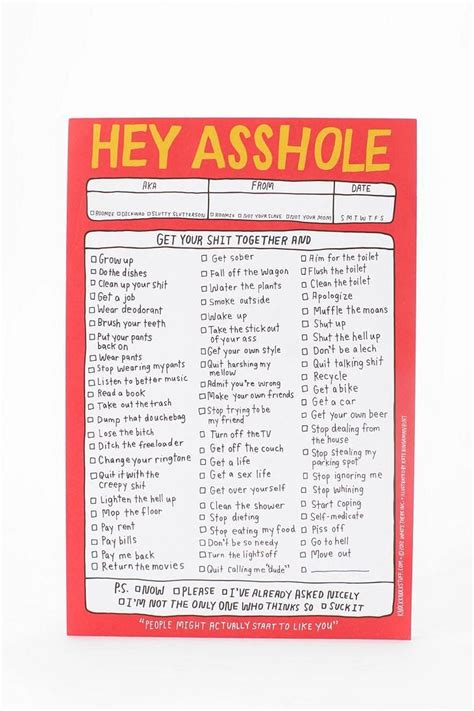 HEY ASSHOLE
AKA FROM DATE
ROOMIE DICKWAD SLUTTY SLUTTERSON ROOMIE NOT YOUR SLAVE NOT YOUR MOM S M T W T F S
GET YOUR SHIT TOGETHER AND
Grow up
Do the dishes
Clean up your shit
Get a job
Wear deodorant
Brush your teeth
Put your pants
back on
Wear pants
Stop wearing my pants
Listen to better music
Read a book
Take out the trash
Dump that douchebag
Lose the bitch
Ditch the freeloader
Change your ringtone
Quit it with the
creepy shit
Lighten the hell up
Mop the floor
Pay rent
Pay bills
Pay me back
Return the movies
Get sober
Fall off the wagon
Water the plants
Smoke outside
Wake up
Take the stick out
of your ass
Get your own style
Quit harshing my
mellow
Admit you're wrong
Make your own friends
Stop trying to be
my friend
Turn off the TV
Get off the couch
Get a life
Get a sex life
Get over yourself
Clean the shower
Stop dieting
Stop eating my food
Don't be so needy
Turn the lights off
Quit calling me "dude"
Aim for the toilet
Flush the toilet
Clean the toilet
Apologize
Muffle the moans
Shut up
Shut the hell up
Don't be a lech
Quit talking shit
Recycle
Get a bike
Get a car
Get your own beer
Stop dealing from
the house
Stop stealing my
parking spot
Stop ignoring me
Stop whining
Start coping
Self-medicate
Piss off
Go to hell
Move out
P.S. NOW PLEASE I'VE ALREADY ASKED NICELY
I'M NOT THE ONLY ONE WHO THINKS SO SUCK IT
"PEOPLE MIGHT ACTUALLY START TO LIKE YOU"
KNOCKKNOCKSTUFF.COM